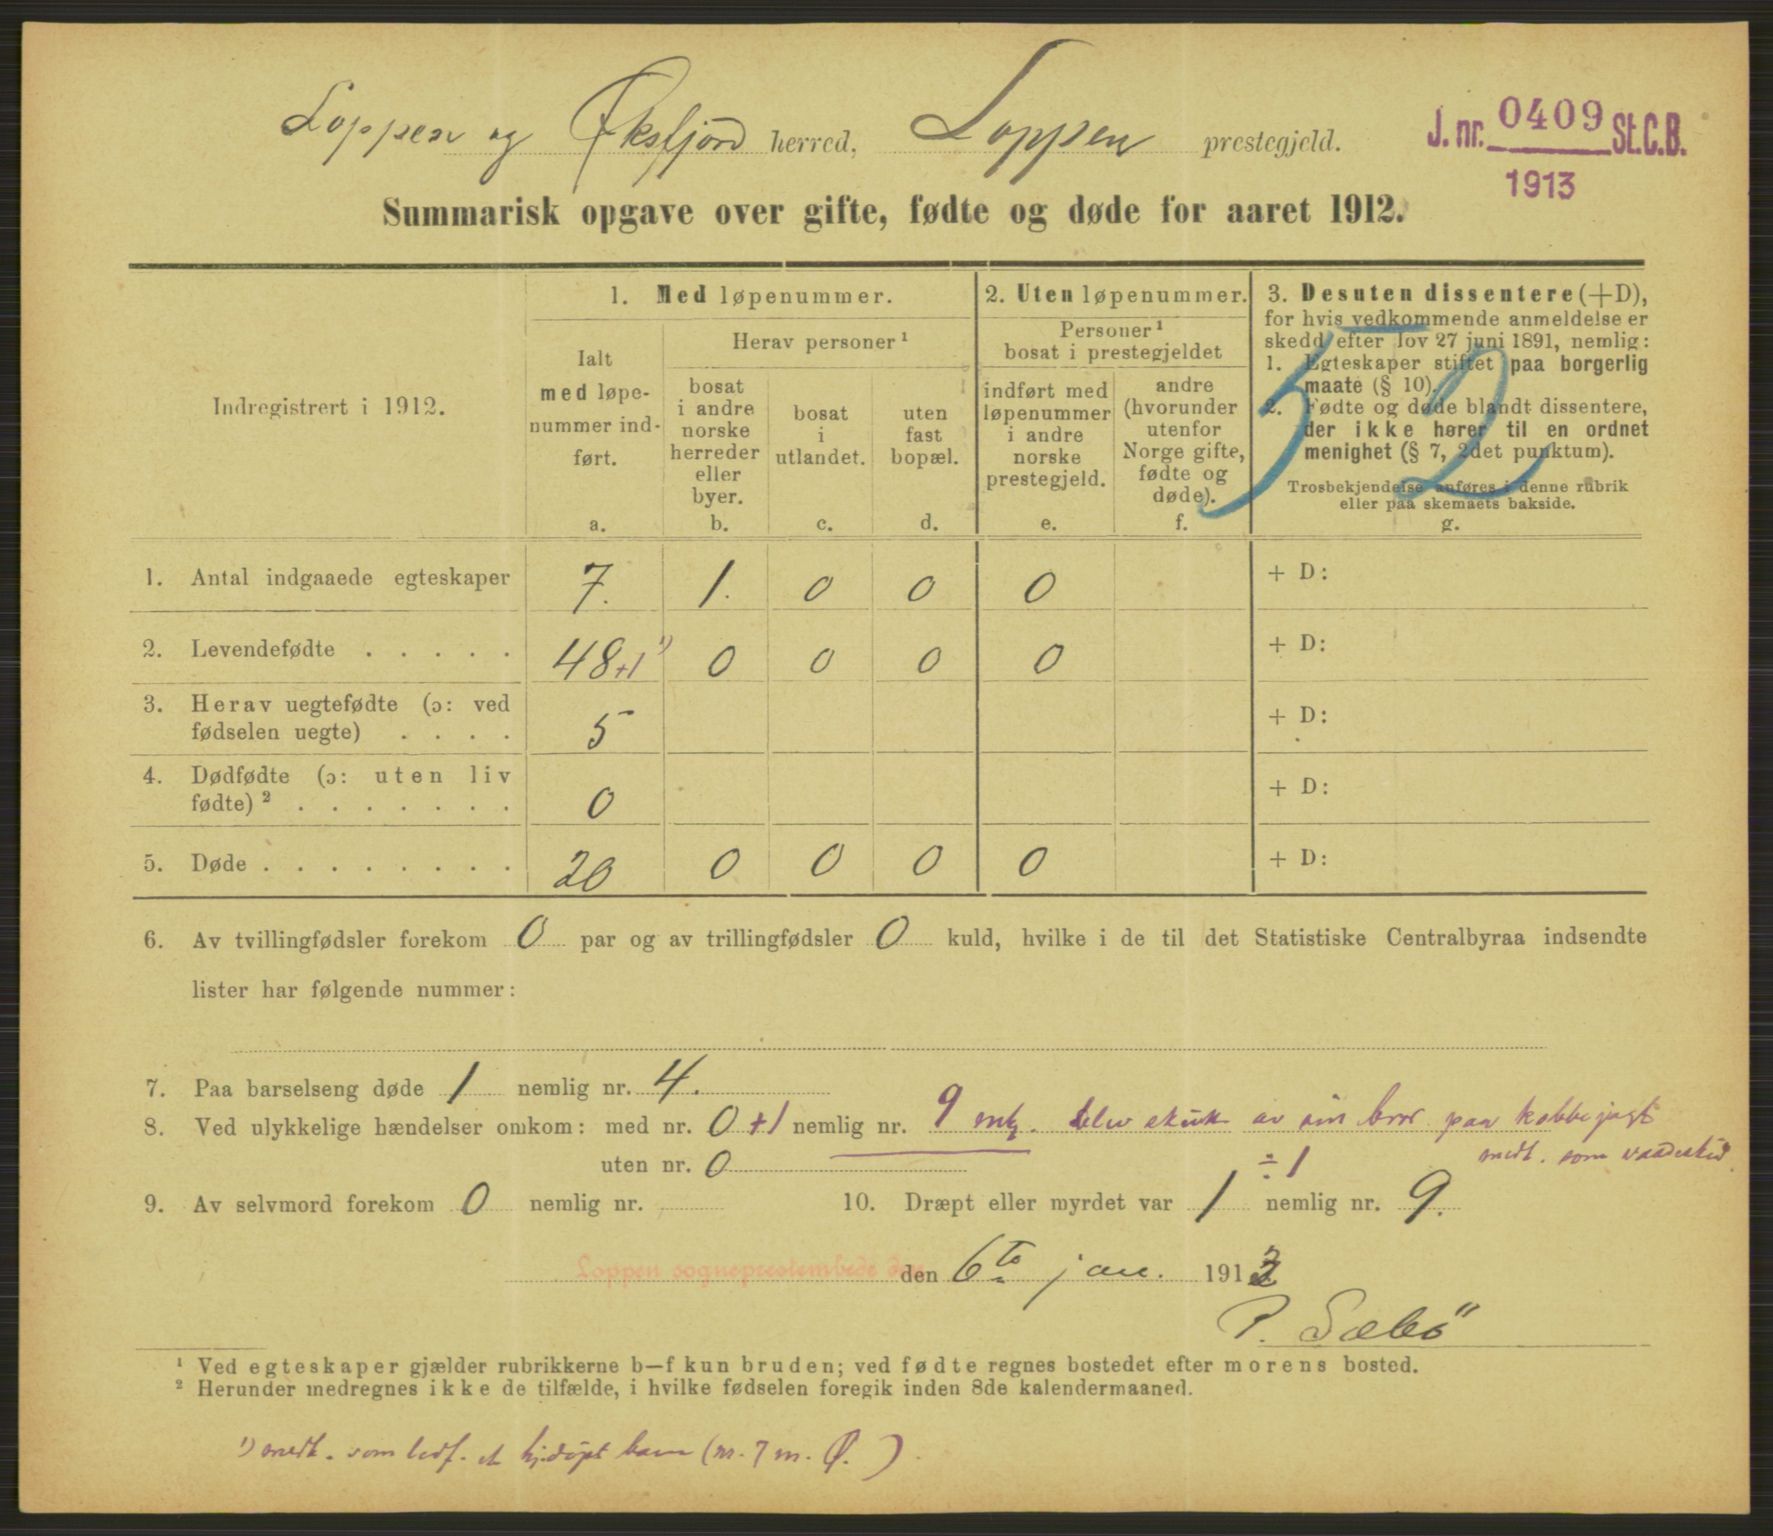 Loppen og Øksfjord herred, Loppen prestegjeld.
J. nr. 0409 St.C.B.
1913
Summarisk opgave over gifte, fødte og døde for aaret 1912.
Indregistrert i 1912.
1. Med løpenummer.
Ialt
med løpe-
nummer ind-
ført.
a.
Herav personer ¹
bosat
i andre
norske
herreder
eller
byer.
b.
bosat
i
utlandet.
c.
uten
fast
bopæl.
d.
2. Uten løpenummer.
Personer ¹
bosat i prestegjeldet
indført med
løpenummer
i andre
norske
prestegjeld.
e.
andre
(hvorunder
utenfor
Norge gifte,
fødte og
døde).
f.
3. Desuten dissentere (+D),
for hvis vedkommende anmeldelse er
skedd efter lov 27 juni 1891, nemlig:
1. Egteskaper stiftet paa borgerlig
maate (§ 10).
2. Fødte og døde blandt dissentere,
der ikke hører til en ordnet
menighet (§ 7, 2det punktum).
Trosbekjendelse anføres i denne rubrik
eller paa skemaets bakside.
g.
1. Antal indgaaede egteskaper 7. 1. 0 0 0 + D:
2. Levendefødte . . . . . 48+1 ¹) 0 0 0 0 + D:
3. Herav uegtefødte (ɔ: ved
fødselen uegte) . . . . 5 + D:
4. Dødfødte (ɔ: uten liv
fødte) ² . . . . . . . 0 + D:
5. Døde . . . . . . . . 20 0 0 0 0 + D:
6. Av tvillingfødsler forekom 0 par og av trillingfødsler 0 kuld, hvilke i de til det Statistiske Centralbyraa indsendte
lister har følgende nummer:
7. Paa barselseng døde 1 nemlig nr. 4.
8. Ved ulykkelige hændelser omkom: med nr. 0 +1 nemlig nr. 9 mk. blev skutt av sin bror paa kobbejagt
medt. som vaadeskud.
uten nr. 0
÷1
9. Av selvmord forekom 0 nemlig nr.
10. Dræpt eller myrdet var 1 nemlig nr. 9.
Loppen sogneprestembede den
den 6te jan. 1913
P. Sæbö
¹ Ved egteskaper gjælder rubrikkerne b—f kun bruden; ved fødte regnes bostedet efter morens bosted.
² Herunder medregnes ikke de tilfælde, i hvilke fødselen foregik inden 8de kalendermaaned.
¹) medt. som levf. et hj.døpt barn (nr. 7 m. Ø.)